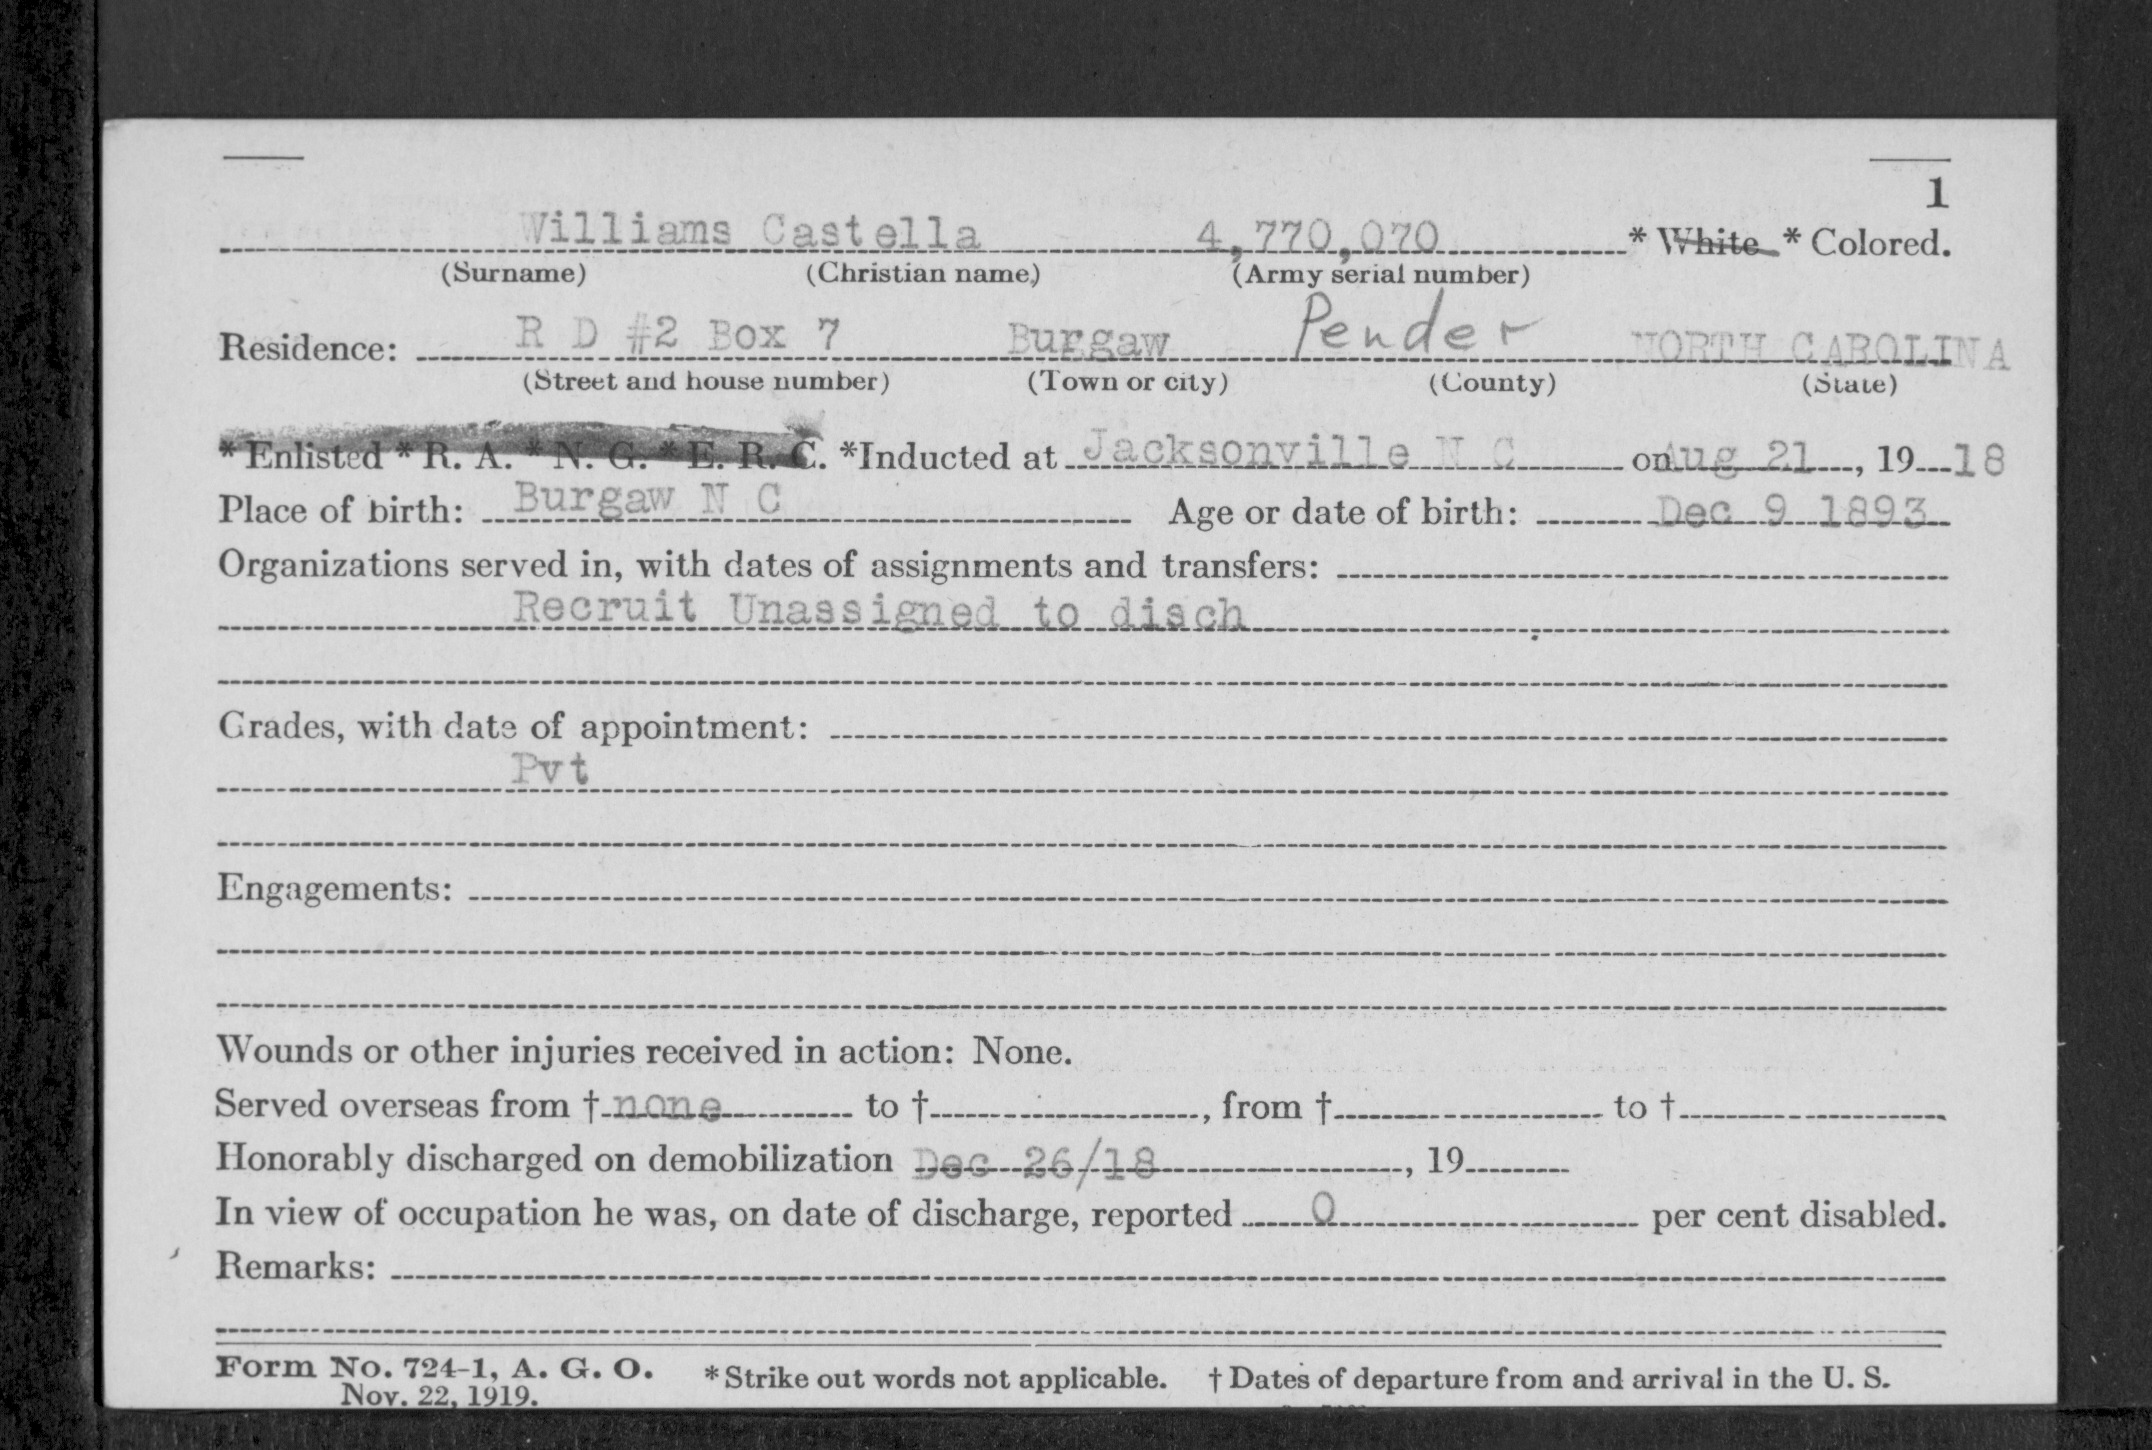 1
Williams Castella 4,770,070 * White * Colored.
(Surname) (Christian name) (Army serial number)
Residence: R D #2 Box 7 Burgaw Pender NORTH CAROLINA
(Street and house number) (Town or city) (County) (State)
* Enlisted * R. A. * N. G. * E. R. C. *Inducted at Jacksonville N C on Aug 21, 19 18
Place of birth: Burgaw N C Age or date of birth: Dec 9 1893
Organizations served in, with dates of assignments and transfers:
Recruit Unassigned to disch
Grades, with date of appointment:
Pvt
Engagements:
Wounds or other injuries received in action: None.
Served overseas from † none to †, from † to †
Honorably discharged on demobilization Dec 26/18, 19
In view of occupation he was, on date of discharge, reported 0 per cent disabled.
Remarks:
Form No. 724-1, A. G. O. * Strike out words not applicable. † Dates of departure from and arrival in the U. S.
Nov. 22, 1919.